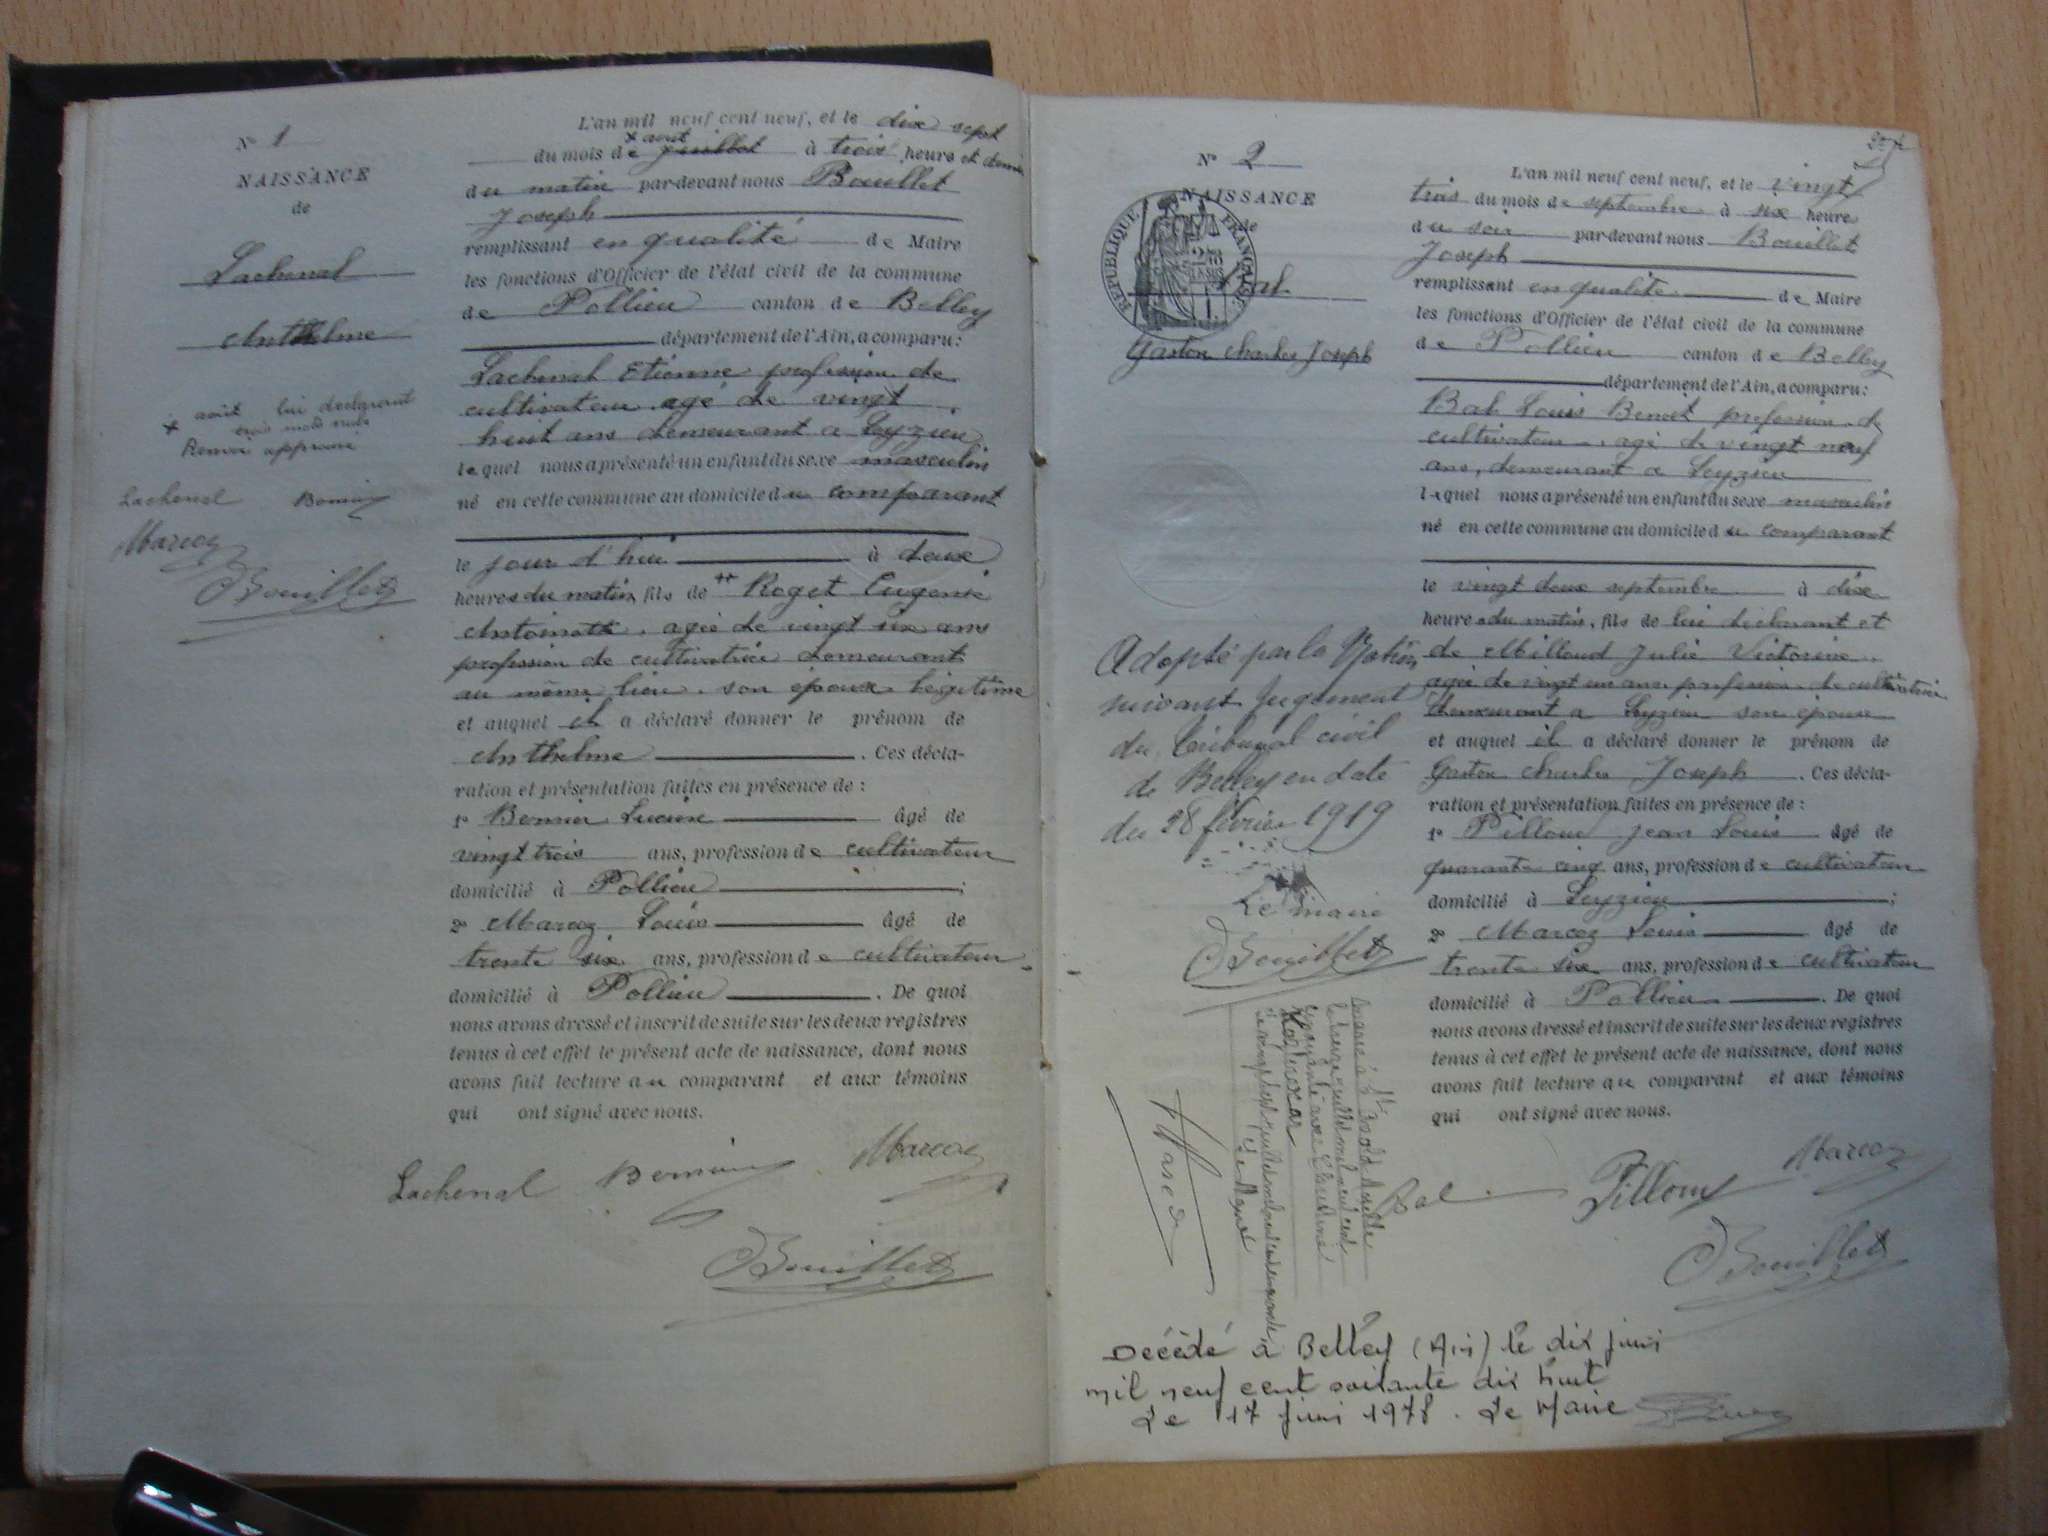 N° 1
NAISSANCE
de
Lachenal
Anthelme
x août lui déclarant
trois mots nuls
Renvoi approuvé
Lachenal Bernin
Marcoz
JBouillet
L'an mil neuf cent neuf, et le dix sept
x aout
du mois de juillet à trois heure et demie
du matin par-devant nous Bouillet
Joseph
remplissant en qualité de Maire
les fonctions d'Officier de l'état civil de la commune
de Pollieu canton de Belley
département de l'Ain, a comparu:
Lachenal Etienne profession de
cultivateur agé de vingt
huit ans demeurant a Leyzieu
lequel nous a présenté un enfant du sexe masculin
né en cette commune au domicile du comparant
le jour d'hui à deux
heures du matin, fils de Roget Eugenie
Antoinette, agée de vingt six ans
profession de cultivatrice demeurant
au même lieu, son épouse légitime
et auquel il a déclaré donner le prénom de
Anthelme. Ces décla-
ration et présentation faites en présence de :
1° Bernin Lucien âgé de
vingt trois ans, profession de cultivateur
domicilié à Pollieu ;
2° Marcoz Louis âgé de
trente six ans, profession de cultivateur
domicilié à Pollieu. De quoi
nous avons dressé et inscrit de suite sur les deux registres
tenus à cet effet le présent acte de naissance, dont nous
avons fait lecture au comparant et aux témoins
qui ont signé avec nous.
Lachenal Bernin Marcoz
JBouillet
N° 2
NAISSANCE
de
RÉPUBLIQUE FRANÇAISE
Bal
Gaston Charles Joseph
Adopté par la Nation
suivant Jugement
du Tribunal civil
de Belley en date
du 28 février 1919
Le maire
JBouillet
Marié à
Le Maire
L'an mil neuf cent neuf, et le vingt
trois du mois de septembre à six heure
du soir par-devant nous Bouillet
Joseph
remplissant en qualité de Maire
les fonctions d'Officier de l'état civil de la commune
de Pollieu canton de Belley
département de l'Ain, a comparu:
Bal Louis Benoit profession de
cultivateur, agé de vingt neuf
ans, demeurant a Leyzieu
lequel nous a présenté un enfant du sexe masculin
né en cette commune au domicile du comparant
le vingt deux septembre à dix
heures du matin, fils de lui déclarant et
de Milloud Julie Victorine
agée de vingt un ans profession de cultivatrice
demeurant a Leyzieu son épouse
et auquel il a déclaré donner le prénom de
Gaston Charles Joseph. Ces décla-
ration et présentation faites en présence de :
1° Pilloux Jean Louis âgé de
quarante cinq ans, profession de cultivateur
domicilié à Leyzieu ;
2° Marcoz Louis âgé de
trente six ans, profession de cultivateur
domicilié à Pollieu. De quoi
nous avons dressé et inscrit de suite sur les deux registres
tenus à cet effet le présent acte de naissance, dont nous
avons fait lecture au comparant et aux témoins
qui ont signé avec nous.
Bal Pilloux Marcoz
JBouillet
Décédé à Belley (Ain) le dix juin
mil neuf cent soixante dix huit
Le 17 juin 1978. Le Maire